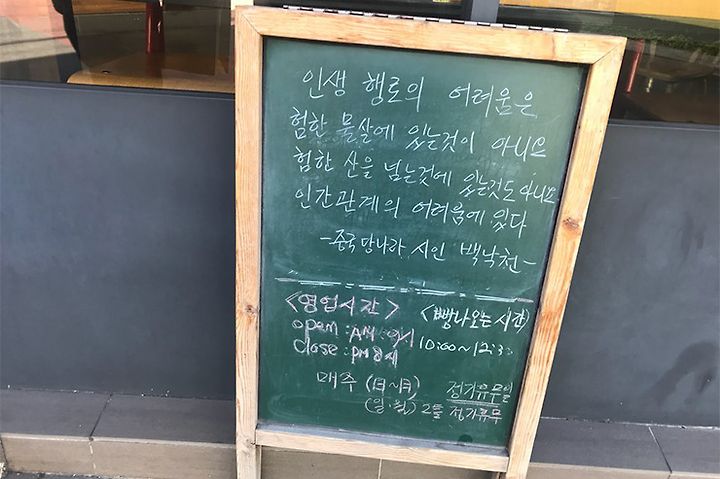 인생 행로의 어려움은
험한 물살에 있는것이 아니요
험한 산을 넘는것에 있는것도 아니요
인간관계의 어려움에 있다
-중국 당나라 시인 백낙천-
<영업시간>
open : AM : 9시
close : PM 8시
<빵나오는 시간>
10:00~12:3
매주 정기휴무일
(일·월) 2틀 정기휴무